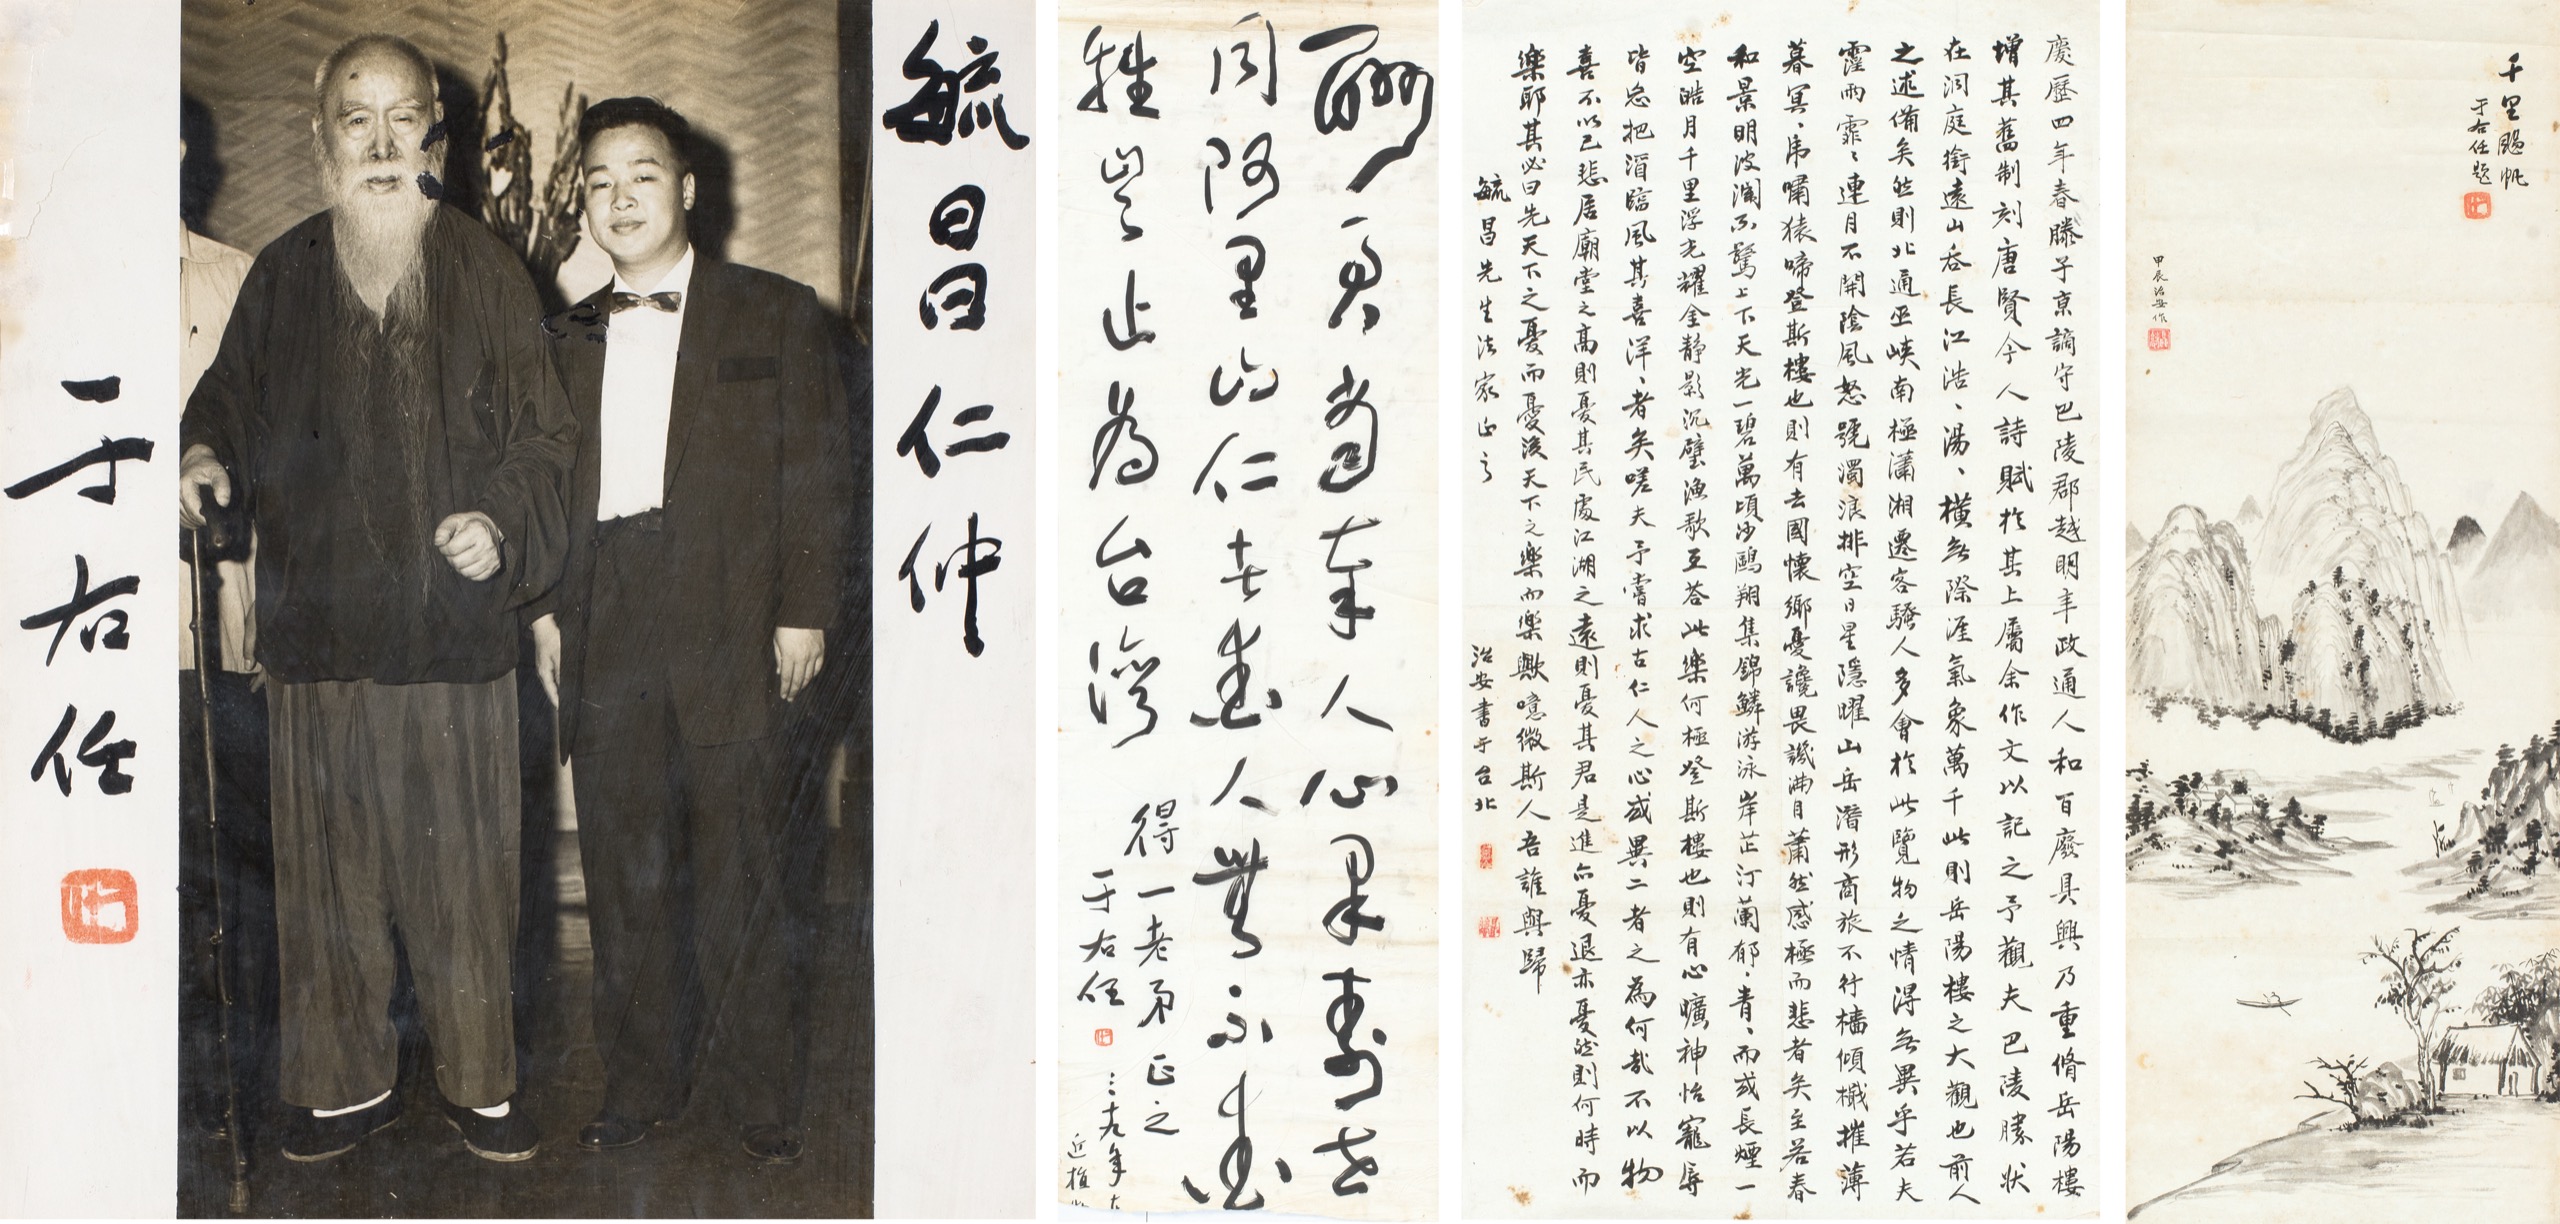 毓昌仁仲
于右任
同阿里山仁者愛人無不愛
牲豈止為台灣
得一老弟正之
于右任
慶歷四年春滕子京謫守巴陵郡越明年政通人和百廢具興乃重脩岳陽樓
增其舊制刻唐賢今人詩賦於其上屬余作文以記之予觀夫巴陵勝狀
在洞庭銜遠山吞長江浩、湯、橫無際涯氣象萬千此則岳陽樓之大觀也前人
之述備矣然則北通巫峽南極瀟湘遷客騷人多會於此覽物之情得無異乎若夫
霪雨霏、連月不開陰風怒號濁浪排空日星隱曜山岳潛形商旅不行檣傾檝摧薄
暮冥、虎嘯猿啼登斯樓也則有去國懷鄉憂讒畏譏滿目蕭然感極而悲者矣至若春
和景明波瀾不驚上下天光一碧萬頃沙鷗翔集錦鱗游泳岸芷汀蘭郁、青、而或長煙一
空皓月千里浮光耀金靜影沉璧漁歌互荅此樂何極登斯樓也則有心曠神怡寵辱
皆忘把酒臨風其喜洋、者矣嗟夫予嘗求古仁人之心或異二者之為何哉不以物
喜不以己悲居廟堂之高則憂其民處江湖之遠則憂其君是進亦憂退亦憂然則何時而
樂耶其必曰先天下之憂而憂後天下之樂而樂歟噫微斯人吾誰與歸
毓昌先生法家正之 治安書于台北
千里颺帆
于右任題
甲辰治安作